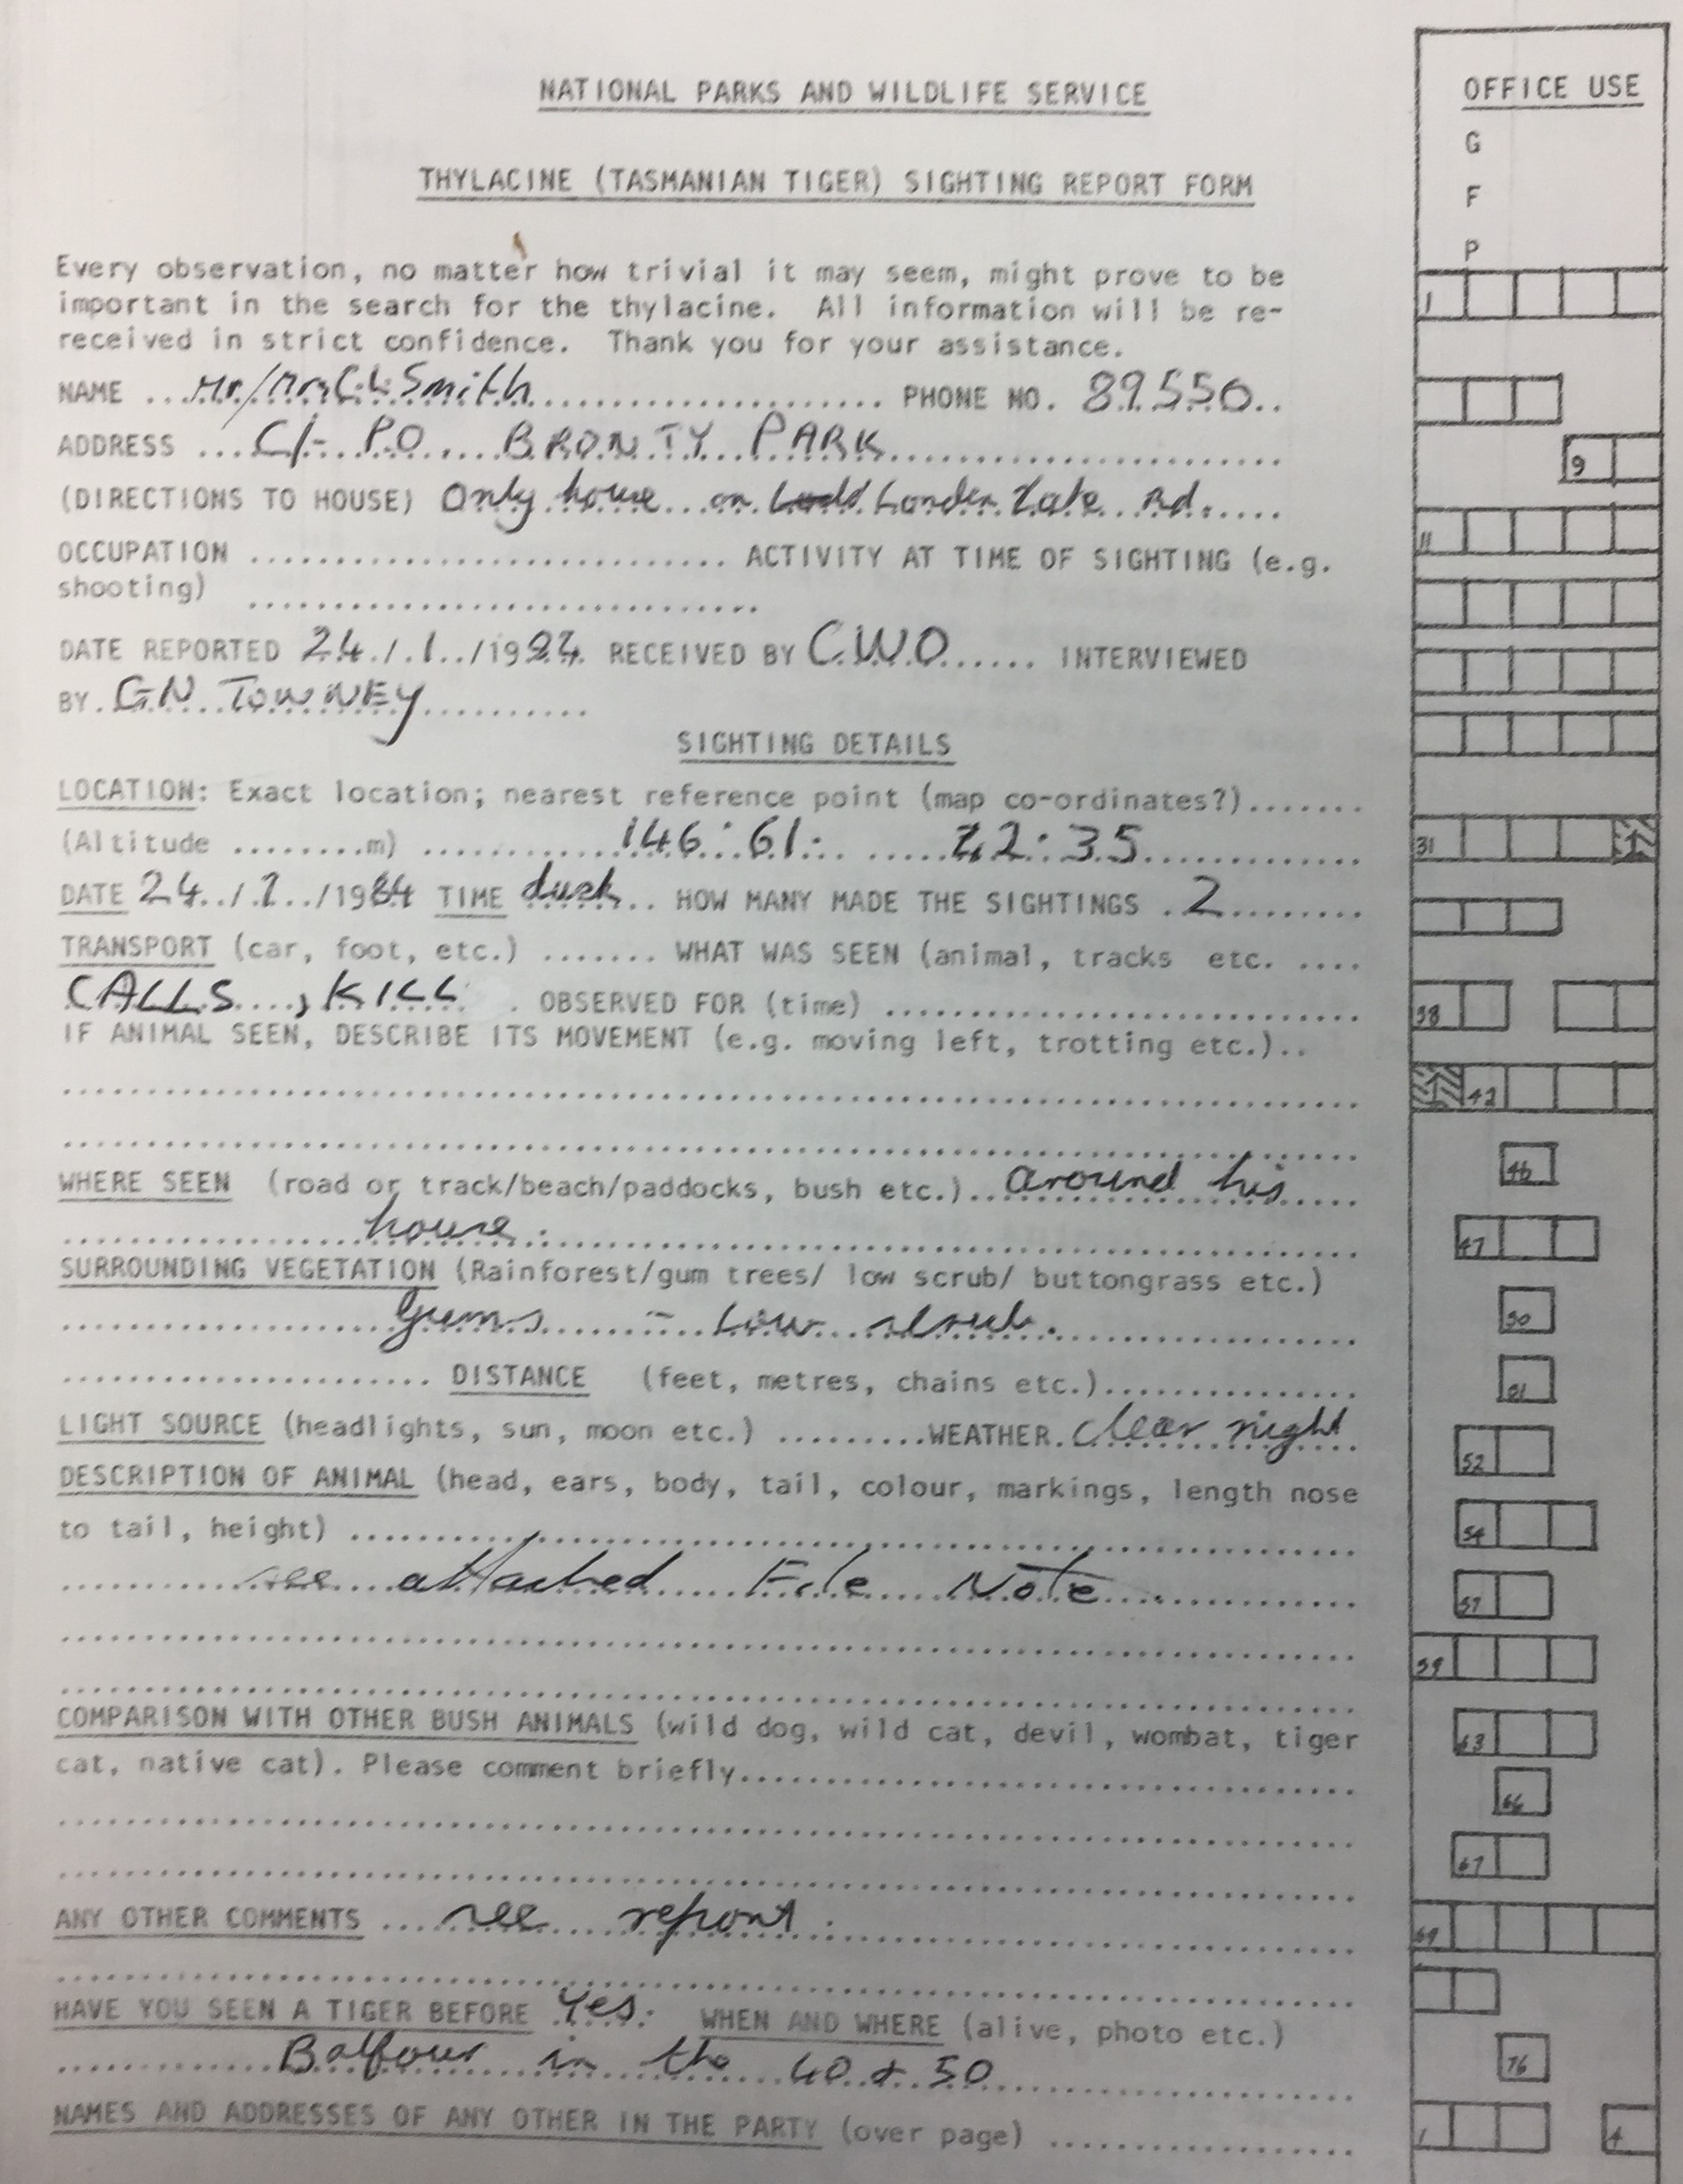 NATIONAL PARKS AND WILDLIFE SERVICE
THYLACINE (TASMANIAN TIGER) SIGHTING REPORT FORM
Every observation, no matter how trivial it may seem, might prove to be
important in the search for the thylacine. All information will be re-
received in strict confidence. Thank you for your assistance.
NAME ...Mr/Mrs C L Smith...... PHONE NO. 89550..
ADDRESS ...C/- P.O.... BRONTY PARK......
(DIRECTIONS TO HOUSE) Only house on London Lake Rd.....
OCCUPATION ...... ACTIVITY AT TIME OF SIGHTING (e.g.
shooting) ......
DATE REPORTED 24./.1../1984 RECEIVED BY C.W.O...... INTERVIEWED
BY. G.N. TOWNEY..........
SIGHTING DETAILS
LOCATION: Exact location; nearest reference point (map co-ordinates?).......
(Altitude ........m) ......146:61: ......42:35......
DATE 24../.1../1984 TIME dusk.. HOW MANY MADE THE SIGHTINGS .2........
TRANSPORT (car, foot, etc.) ....... WHAT WAS SEEN (animal, tracks etc. ....
CALLS...., KILL . OBSERVED FOR (time) ......
IF ANIMAL SEEN, DESCRIBE ITS MOVEMENT (e.g. moving left, trotting etc.)..
WHERE SEEN (road or track/beach/paddocks, bush etc.)..around his....
house.
SURROUNDING VEGETATION (Rainforest/gum trees/ low scrub/ buttongrass etc.)
Gums - Low scrub.
...... DISTANCE (feet, metres, chains etc.)......
LIGHT SOURCE (headlights, sun, moon etc.) .........WEATHER.clear night
DESCRIPTION OF ANIMAL (head, ears, body, tail, colour, markings, length nose
to tail, height) ......
see attached File Note
COMPARISON WITH OTHER BUSH ANIMALS (wild dog, wild cat, devil, wombat, tiger
cat, native cat). Please comment briefly......
ANY OTHER COMMENTS ....see report.
HAVE YOU SEEN A TIGER BEFORE .Yes. WHEN AND WHERE (alive, photo etc.)
Balfour in the 40 & 50
NAMES AND ADDRESSES OF ANY OTHER IN THE PARTY (over page) ......
OFFICE USE
G
F
P
1
9
11
31
38
42
46
47
50
51
52
54
57
59
63
66
67
69
76
1 4